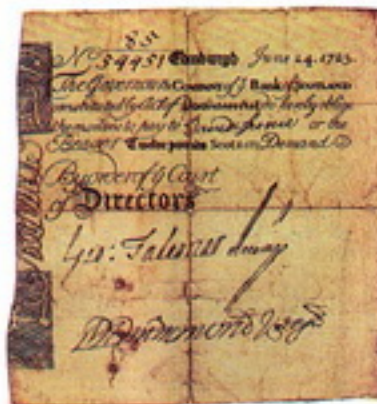 83
No 54451 Edinburgh June 24. 1723.
The Governour & Company of ye Bank of Scotland
constituted by Act of Parliament do hereby oblige
themselves to pay to or the
Bearer Twelve pounds Scots on Demand
By order of ye Court
of Directors
Drummond